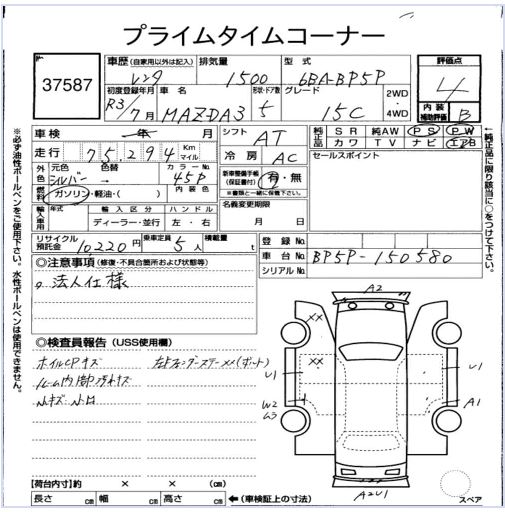 プライムタイムコーナー
37587
車歴 (自家用以外は記入) レンタ
排気量 1500
型式 6BA-BP5P
評価点 4
初度登録年月 R3/7月
車名 MAZDA3
形状・ドア数 5
グレード 15C
2WD・4WD
内装補助評価 B
車検 年 月
シフト AT
純正品 SR 純AW PS PW
カワ TV ナビ エアB
走行 75,294 Km マイル
冷房 AC
セールスポイント
外色 元色 シルバー → 色替
カラーNo. 45P
内装色
新車整備手帳(保証書付) 有・無
※書類と一緒に保管下さい。
燃料 ガソリン・軽油・( )
名義変更期限
月 日
輸入車用 年式 輸入区分 ディーラー・並行 ハンドル 左・右
リサイクル預託金 10220円
乗車定員 5人
積載量 t
登録No.
車台No. BP5P-150580
シリアルNo.
◎注意事項 (修復・不具合箇所および状態等)
法人仕様
◎検査員報告 (USS使用欄)
ホイルCPキズ
ルーム内
小キズ・小凹
A2
××
××
U1
U1
W2
A1
A2U1
スペア
【荷台内寸】約 × × (㎝)
長さ ㎝ 幅 ㎝ 高さ ㎝ ←(車検証上の寸法)
※必ず油性ボールペンをご使用下さい。水性ボールペンは使用できません。
←純正品に限り該当に○をつけて下さい。